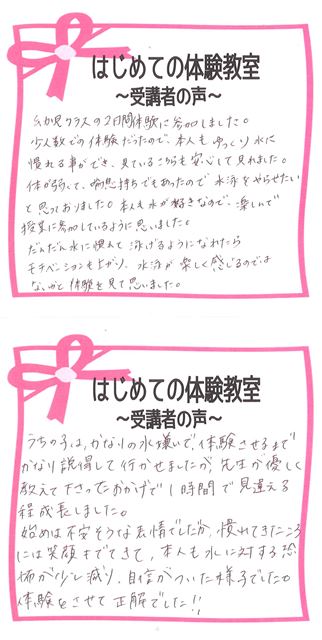 はじめての体験教室
～受講者の声～
幼児クラスの2日間体験に参加しました。
少人数での体験だったので、本人もゆっくり水に
慣れる事ができ、見ているこちらも安心して見れました。
体が弱くて、喘息持ちでもあったので水泳をやらせたい
と思っておりました。本人も水が好きなので、楽しんで
授業に参加しているように思いました。
だんだん水に慣れて泳げるようになれたら
モチベーションも上がり、水泳が楽しく感じるのでは
ないかと体験を見て思いました。
はじめての体験教室
～受講者の声～
うちの子は、かなりの水嫌いで、体験させるまで
かなり説得して行かせましたが、先生が優しく
教えて下さったおかげで1時間で見違える
程成長しました。
始めは不安そうな表情でしたが、慣れてきたころ
には笑顔まででてきて、本人も水に対する恐
怖が少し減り、自信がついた様子でした。
体験をさせて正解でした!!